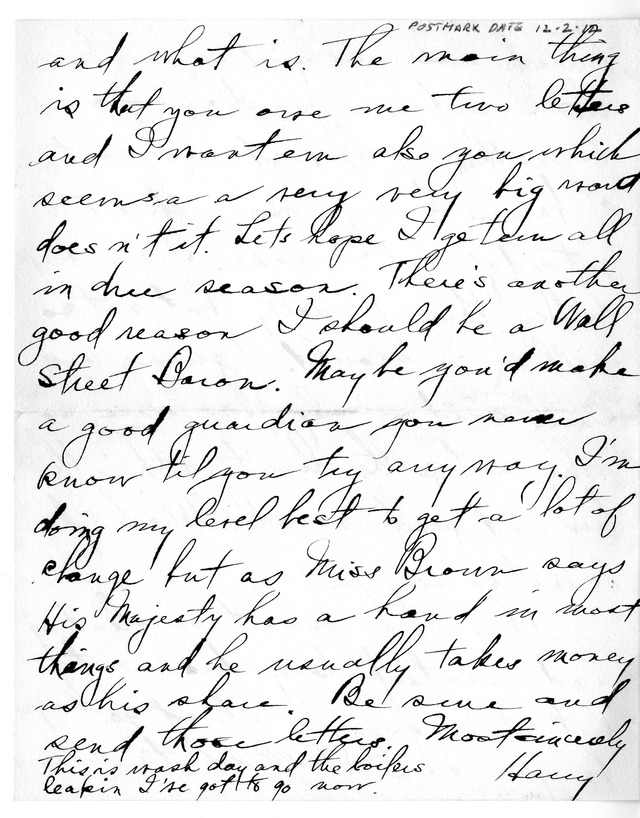 POSTMARK DATE 12-2-12
and what is. The main thing
is that you owe me two letters
and I want em also you which
seems a a very very big word
does n't it. Lets hope I get em all
in due season. There's another
good reason I should be a Wall
Street Baron. Maybe you'd make
a good guardian you never
know til you try any way. I'm
doing my level best to get a lot of
change but as Miss Brown says
His Majesty has a hand in most
things and he usually takes money
as his share. Be sure and
send those letters. Most sincerely
Harry
This is wash day and the boilers
leakin I've got to go now.